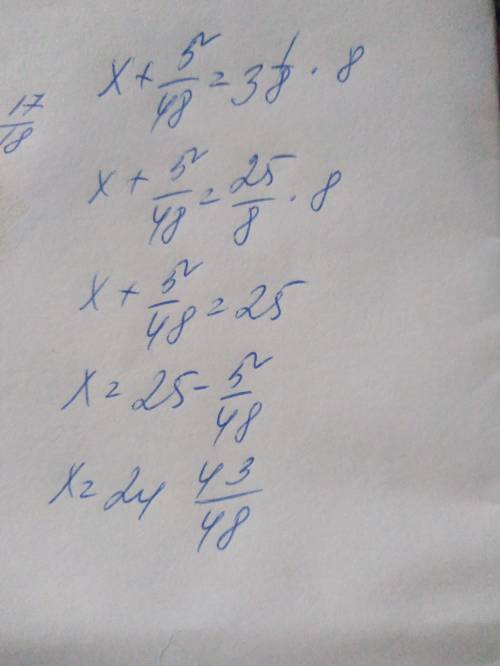 17/18
x + 5/48 = 3 1/8 · 8
x + 5/48 = 25/8 · 8
x + 5/48 = 25
x = 25 - 5/48
x = 24 43/48